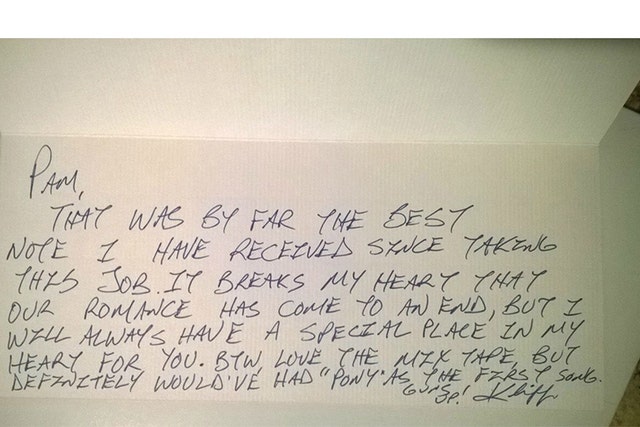 PAM,
THAT WAS BY FAR THE BEST
NOTE I HAVE RECEIVED SINCE TAKING
THIS JOB. IT BREAKS MY HEART THAT
OUR ROMANCE HAS COME TO AN END, BUT I
WILL ALWAYS HAVE A SPECIAL PLACE IN MY
HEART FOR YOU. BTW, LOVE THE MIX TAPE, BUT
DEFINITELY WOULD'VE HAD "PONY" AS THE FIRST SONG.
GUNS
UP! Kliff